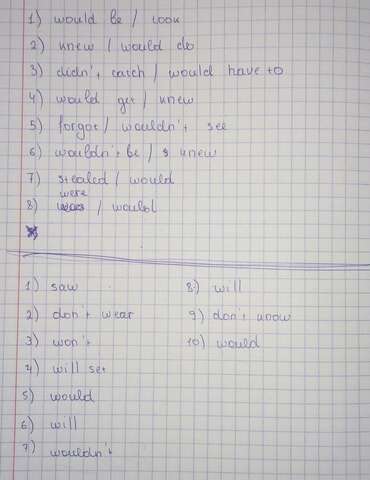 1) would be / look
2) knew / would do
3) didn't catch / would have to
4) would get / knew
5) forgot / wouldn't see
6) wouldn't be / knew
7) stealed / would
were
8) / would
1) saw
2) don't wear
3) won't
4) will set
5) would
6) will
7) wouldn't
8) will
9) don't know
10) would